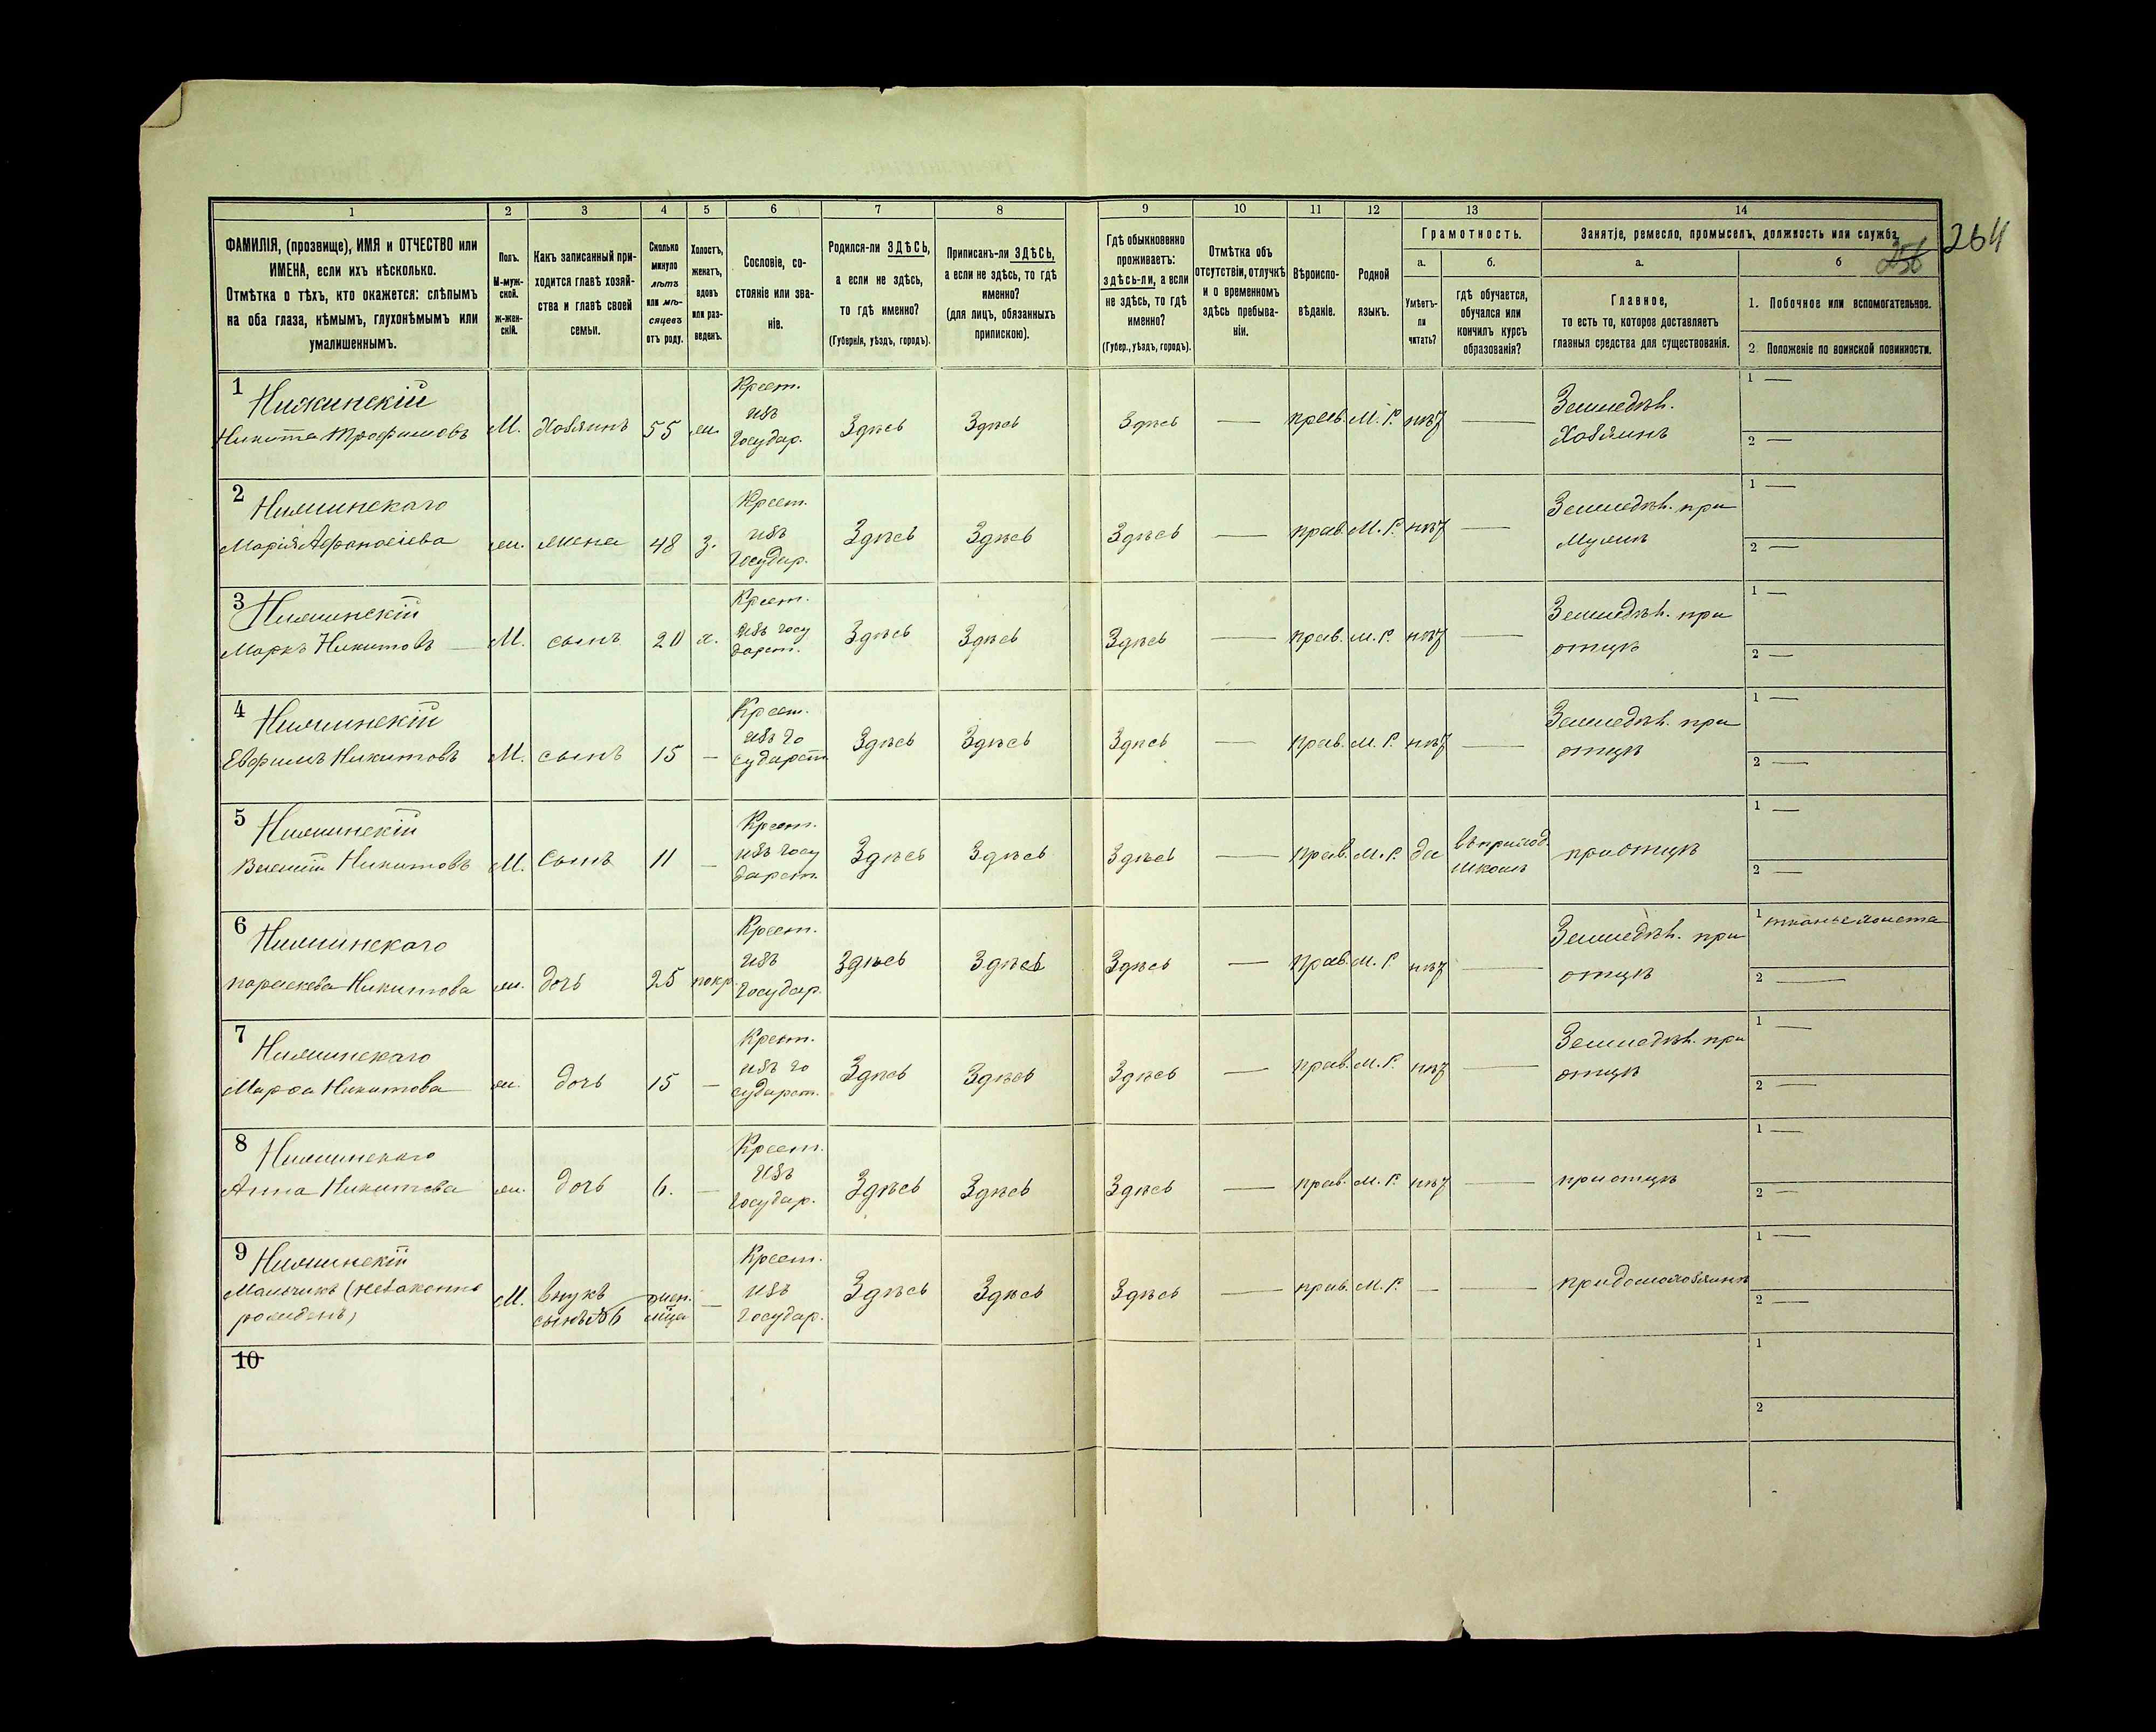 264
256
1 2 3 4 5 6 7 8 9 10 11 12 13 14
ФАМИЛІЯ, (прозвище), ИМЯ и ОТЧЕСТВО или
ИМЕНА, если ихъ нѣсколько.
Отмѣтка о тѣхъ, кто окажется: слѣпымъ
на оба глаза, нѣмымъ, глухонѣмымъ или
умалишеннымъ.
Полъ.
М-муж-
ской.
ж-жен-
скій.
Какъ записанный при-
ходится главѣ хозяй-
ства и главѣ своей
семьи.
Сколько
минуло
лѣтъ
или мѣ-
сяцевъ
отъ роду.
Холостъ,
женатъ,
вдовъ
или раз-
веденъ.
Сословіе, со-
стояніе или зва-
ніе.
Родился-ли ЗДѢСЬ,
а если не здѣсь,
то гдѣ именно?
(Губернія, уѣздъ, городъ).
Приписанъ-ли ЗДѢСЬ,
а если не здѣсь, то гдѣ
именно?
(для лицъ, обязанныхъ
припискою).
Гдѣ обыкновенно
проживаетъ:
здѣсь-ли, а если
не здѣсь, то гдѣ
именно?
(Губер., уѣздъ, городъ).
Отмѣтка объ
отсутствіи, отлучкѣ
и о временномъ
здѣсь пребыва-
ніи.
Вѣроиспо-
вѣданіе.
Родной
языкъ.
Грамотность.
а.
Умѣетъ-
ли
читать?
б.
гдѣ обучается,
обучался или
кончилъ курсъ
образованія?
Занятіе, ремесло, промыселъ, должность или служба.
а.
Главное,
то есть то, которое доставляетъ
главныя средства для существованія.
б
1. Побочное или вспомогательное.
2. Положеніе по воинской повинности.
1
Нижинскій
Никита Трофимовъ
М.
Хозяинъ
55
ж.
Крест.
изъ
Государ.
Здѣсь
Здѣсь
Здѣсь
—
прав.
М. Р.
нѣт
—
Земледѣл.
Хозяинъ
1 —
2 —
2
Нижинскаго
Марія Афанасіева
ж.
жена
48
з.
Крест.
изъ
Государ.
Здѣсь
Здѣсь
Здѣсь
—
прав.
М. Р.
нѣт
—
Земледѣл. при
Мужѣ
1 —
2 —
3
Нижинскій
Маркъ Никитовъ
М.
сынъ
20
х.
Крест.
изъ госу
дарст.
Здѣсь
Здѣсь
Здѣсь
—
прав.
М. Р.
нѣт
—
Земледѣл. при
отцѣ
1 —
2 —
4
Нижинскій
Евфимъ Никитовъ
М.
сынъ
15
—
Крест.
изъ го
сударст.
Здѣсь
Здѣсь
Здѣсь
—
прав.
М. Р.
нѣт
—
Земледѣл. при
отцѣ
1 —
2 —
5
Нижинскій
Никитовъ
М.
Сынъ
11
—
Крест.
изъ госу
дарст.
Здѣсь
Здѣсь
Здѣсь
—
прав.
М. Р.
да
въ приход.
школѣ
при отцѣ
1 —
2 —
6
Нижинскаго
параскева Никитова
ж.
дочь
25
покр.
Крест.
изъ
Государ.
Здѣсь
Здѣсь
Здѣсь
—
прав.
М. Р.
нѣт
—
Земледѣл. при
отцѣ
1 тканье холста
2 —
7
Нижинскаго
Марфа Никитова
ж.
дочь
15
—
Крест.
изъ го
сударст.
Здѣсь
Здѣсь
Здѣсь
—
прав.
М. Р.
нѣт
—
Земледѣл. при
отцѣ
1 —
2 —
8
Нижинскаго
Анна Никитова
ж.
дочь
6.
—
Крест.
изъ
Государ.
Здѣсь
Здѣсь
Здѣсь
—
прав.
М. Р.
нѣт
—
при отцѣ
1 —
2 —
9
Нижинскій
Мальчикъ (незаконно
рожденъ)
М.
внукъ
сынъ № 6
—
Крест.
изъ
Государ.
Здѣсь
Здѣсь
Здѣсь
—
прав.
М. Р.
—
—
при домохозяинѣ
1 —
2 —
10
1
2